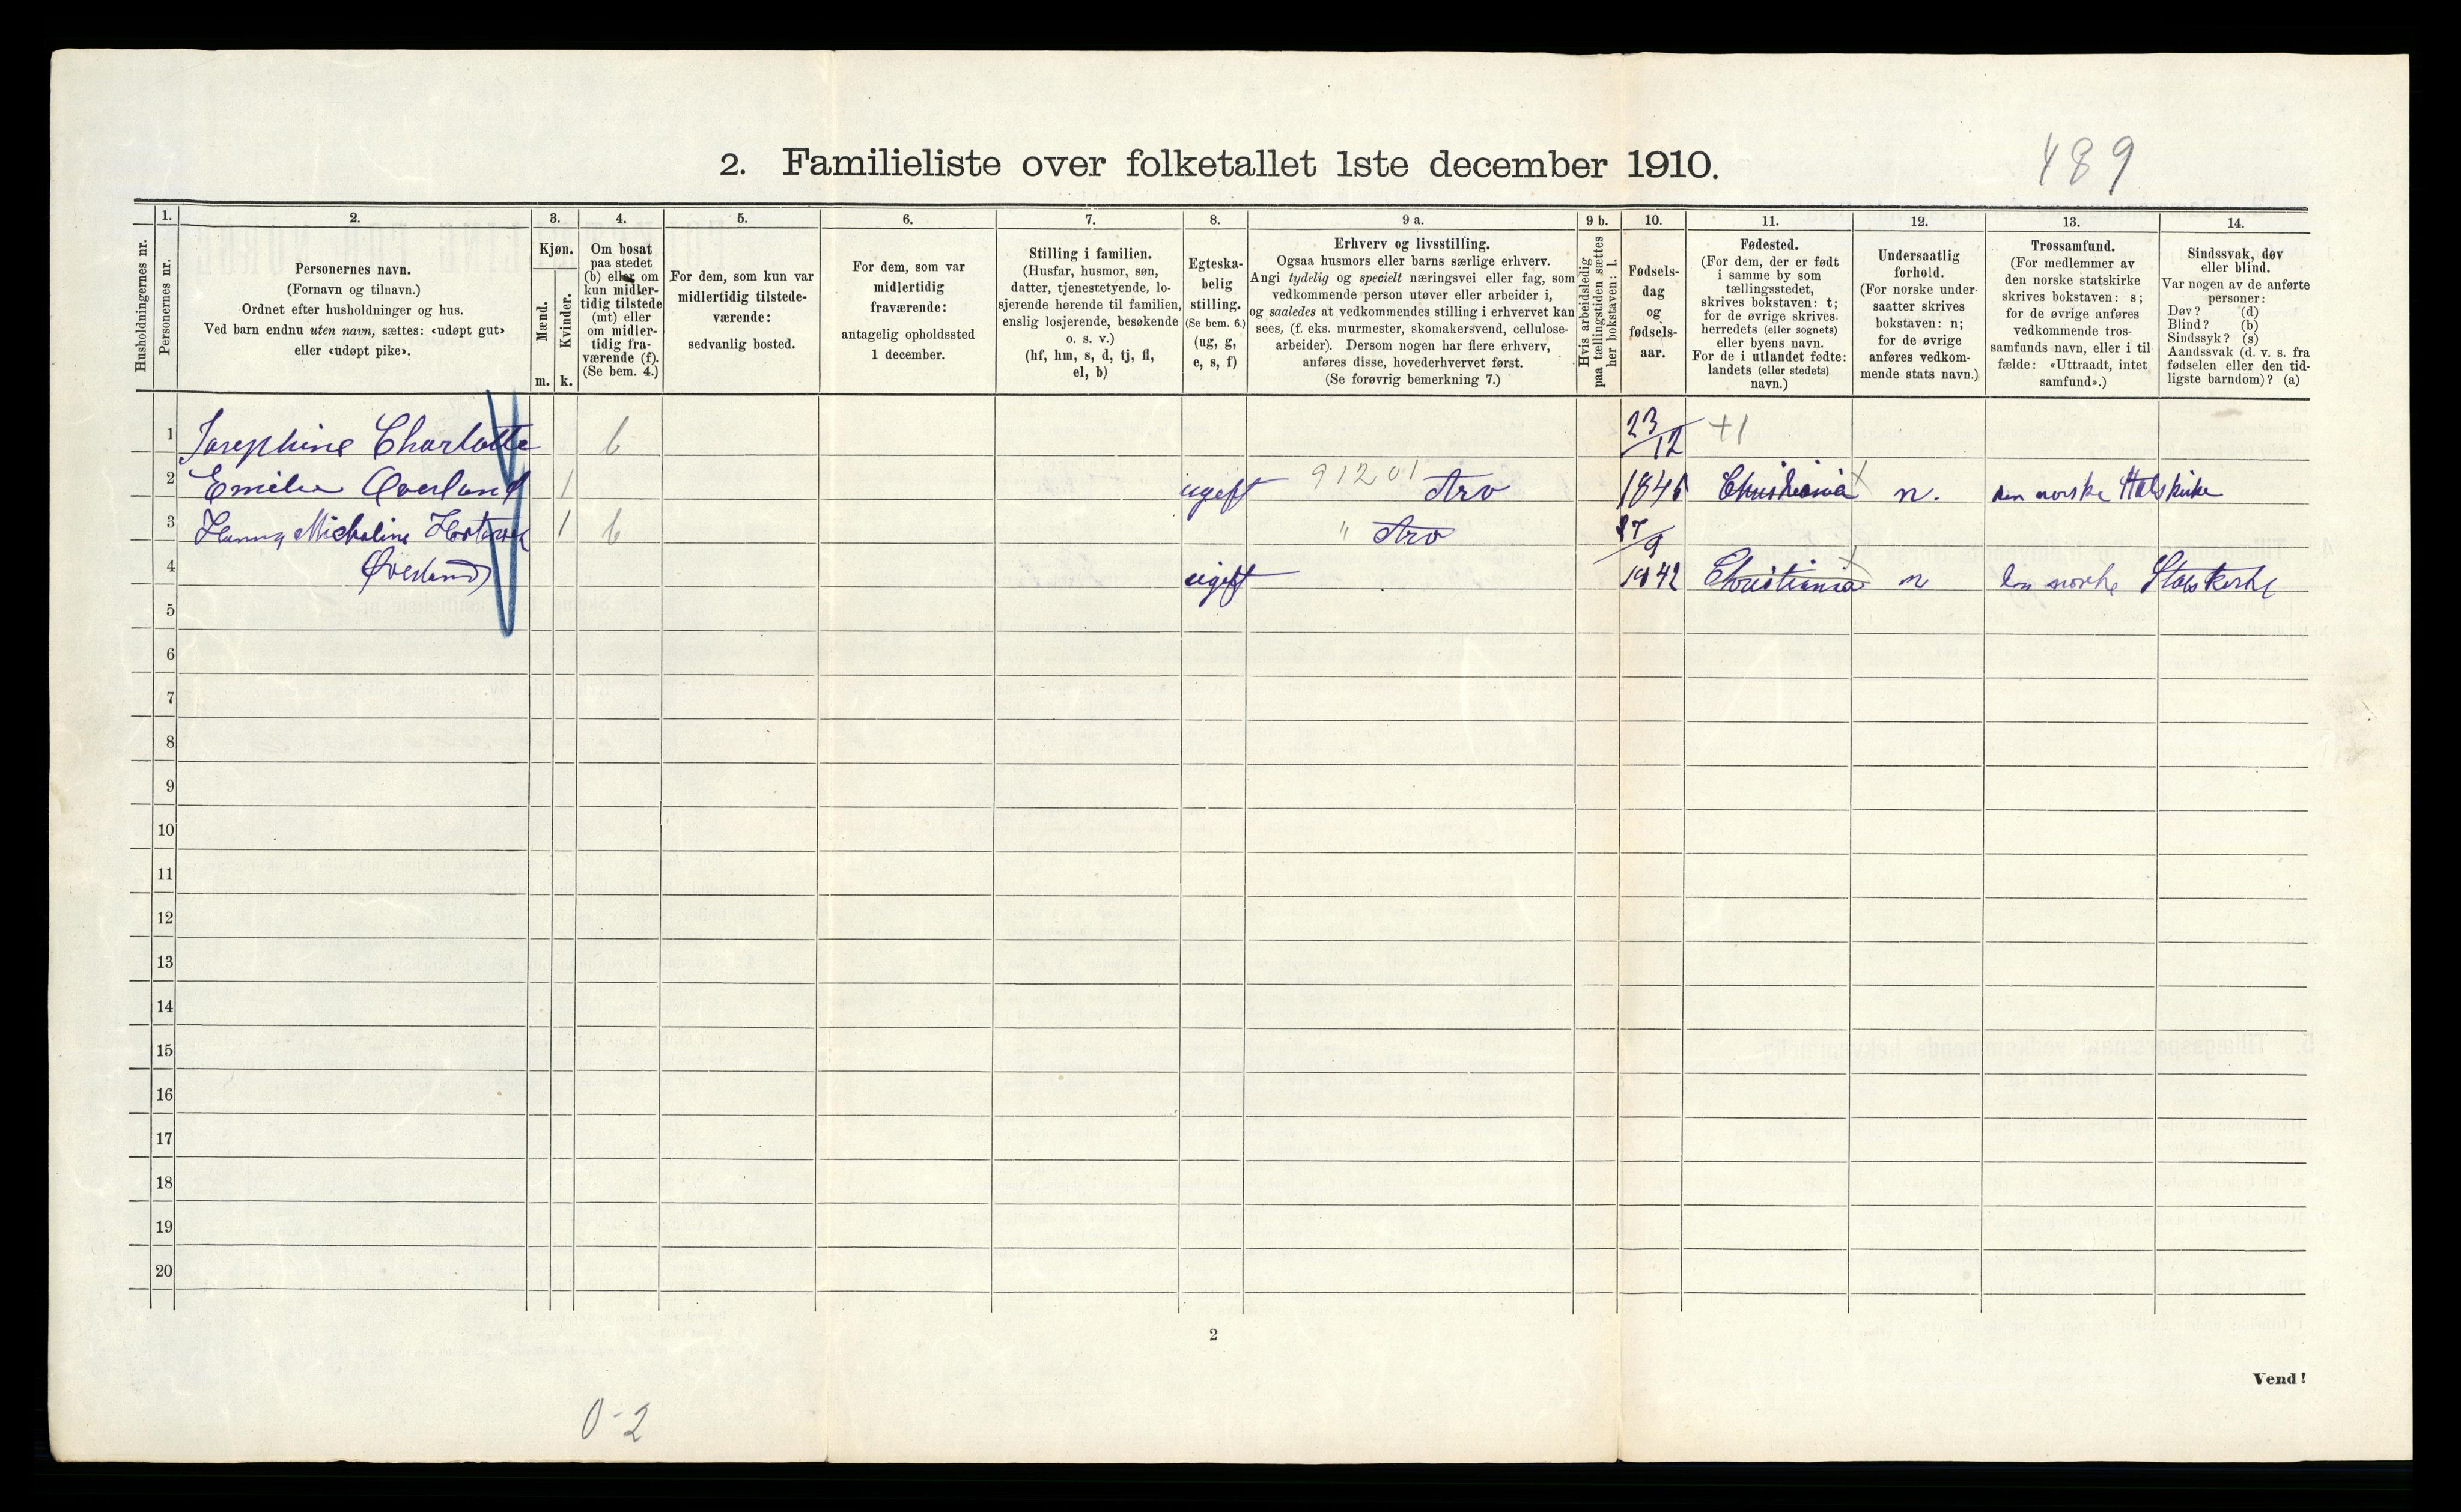 489
2. Familieliste over folketallet 1ste december 1910.
Husholdningernes nr.
1.
Personernes nr.
2.
Personernes navn.
(Fornavn og tilnavn.)
Ordnet efter husholdninger og hus.
Ved barn endnu uten navn, sættes: «udøpt gut»
eller «udøpt pike».
3.
Kjøn.
Mænd.
m.
Kvinder.
k.
4.
Om bosat
paa stedet
(b) eller om
kun midler-
tidig tilstede
(mt) eller
om midler-
tidig fra-
værende (f).
(Se bem. 4.)
5.
For dem, som kun var
midlertidig tilstede-
værende:
sedvanlig bosted.
6.
For dem, som var
midlertidig
fraværende:
antagelig opholdssted
1 december.
7.
Stilling i familien.
(Husfar, husmor, søn,
datter, tjenestetyende, lo-
sjerende hørende til familien,
enslig losjerende, besøkende
o. s. v.)
(hf, hm, s, d, tj, fl,
el, b)
8.
Egteska-
belig
stilling.
(Se bem. 6.)
(ug, g,
e, s, f)
9 a.
Erhverv og livsstilling.
Ogsaa husmors eller barns særlige erhverv.
Angi tydelig og specielt næringsvei eller fag, som
vedkommende person utøver eller arbeider i,
og saaledes at vedkommendes stilling i erhvervet kan
sees, (f. eks. murmester, skomakersvend, cellulose-
arbeider). Dersom nogen har flere erhverv,
anføres disse, hovederhvervet først.
(Se forøvrig bemerkning 7.)
9 b.
Hvis arbeidsledig
paa tællingstiden sættes
her bokstaven: l.
10.
Fødsels-
dag
og
fødsels-
aar.
11.
Fødested.
(For dem, der er født
i samme by som
tællingsstedet,
skrives bokstaven: t;
for de øvrige skrives
herredets (eller sognets)
eller byens navn.
For de i utlandet fødte:
landets (eller stedets)
navn.)
12.
Undersaatlig
forhold.
(For norske under-
saatter skrives
bokstaven: n;
for de øvrige
anføres vedkom-
mende stats navn.)
13.
Trossamfund.
(For medlemmer av
den norske statskirke
skrives bokstaven: s;
for de øvrige anføres
vedkommende tros-
samfunds navn, eller i til
fælde: «Uttraadt, intet
samfund».)
14.
Sindssvak, døv
eller blind.
Var nogen av de anførte
personer:
Døv? (d)
Blind? (b)
Sindssyk? (s)
Aandssvak (d. v. s. fra
fødselen eller den tid-
ligste barndom)? (a)
1 Josephine Charlotte b 23/12 +1
2 Emilie Øverland 1 ugift 91201 Arv Christiania n. den norske Statskirke
3 Hanna Micheline 1 b " Arv
4 Øverland ugift 1842 Christiania n den norske Statskirke
5
6
7
8
9
10
11
12
13
14
15
16
17
18
19
20
2
Vend!
0-2